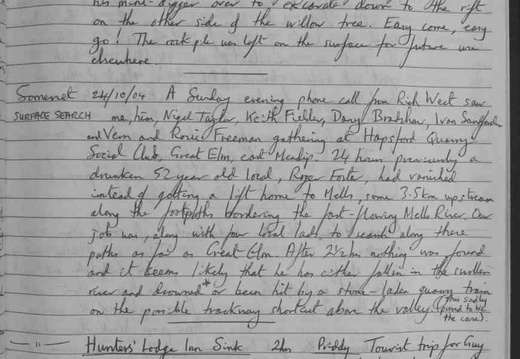 his mini-digger over to excavate down to the rift
on the other side of the willow tree. Easy come, easy
go! The rock pile was left on the surface for future use
elsewhere.
Somerset 24/10/04 A Sunday evening phone call from Rich West saw
SURFACE SEARCH me, him, Nigel Taylor, Keith Fielder, Dany Bradshaw, Ivan Sandford
and Vern and Rosie Freeman gathering at Hapsford Quarry
Social Club, Great Elm, east Mendip. 24 hours previously a
drunken 52 year old local, Roger Foster, had vanished
instead of getting a lift home to Mells, some 3.5km upstream
along the footpaths bordering the fast-flowing Mells River. Our
job was, along with four local lads, to search along these
paths as far as Great Elm. After 2½hrs nothing was found
and it seems likely that he has either fallen in the swollen
river and drowned* or been hit by a stone-laden quarry train
on the possible trackway shortcut above the valley. (*this sadly
proved to be
the case).
— " — Hunters' Lodge Inn Sink 2hrs Priddy Tourist trip for Guy